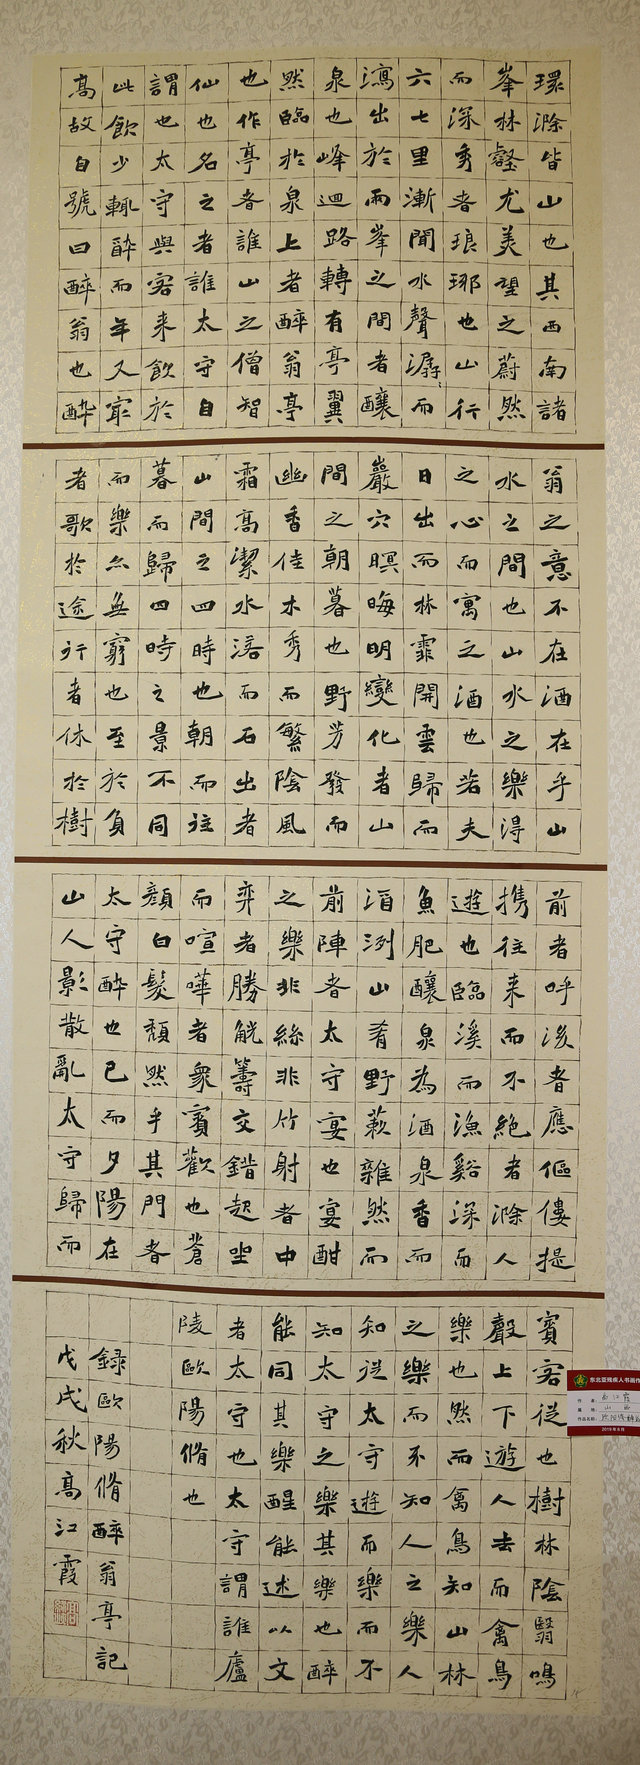 環滁皆山也其西南諸
峯林壑尤美望之蔚然
而深秀者琅琊也山行
六七里漸聞水聲潺〻而
瀉出於兩峯之間者釀
泉也峰迴路轉有亭翼
然臨於泉上者醉翁亭
也作亭者誰山之僧智
仙也名之者誰太守自
謂也太守與客来飲於
此飲少輒醉而年又冣
高故自號曰醉翁也醉
翁之意不在酒在乎山
水之間也山水之樂得
之心而寓之酒也若夫
日出而林霏開雲歸而
巖穴暝晦明變化者山
間之朝暮也野芳發而
幽香佳木秀而繁陰風
霜高潔水落而石出者
山間之四時也朝而往
暮而歸四時之景不同
而樂亦無窮也至於負
者歌於途行者休於樹
前者呼後者應傴僂提
携往来而不絶者滁人
遊也臨溪而漁谿深而
魚肥釀泉為酒泉香而
酒洌山肴野蔌雜然而
前陣者太守宴也宴酣
之樂非絲非竹射者中
弈者勝觥籌交錯起坐
而喧嘩者衆賓歡也蒼
顔白髮頽然乎其門者
太守醉也已而夕陽在
山人影散亂太守歸而
賓客從也樹林陰翳鳴
聲上下遊人去而禽鳥
樂也然而禽鳥知山林
之樂而不知人之樂人
知從太守遊而樂而不
知太守之樂其樂也醉
能同其樂醒能述以文
者太守也太守謂誰廬
陵歐陽脩也
録歐陽脩醉翁亭記
戊戌秋高江霞
东北亚残疾人书画作
作者：高江霞
属地：山西
作品名称：
2019年8月